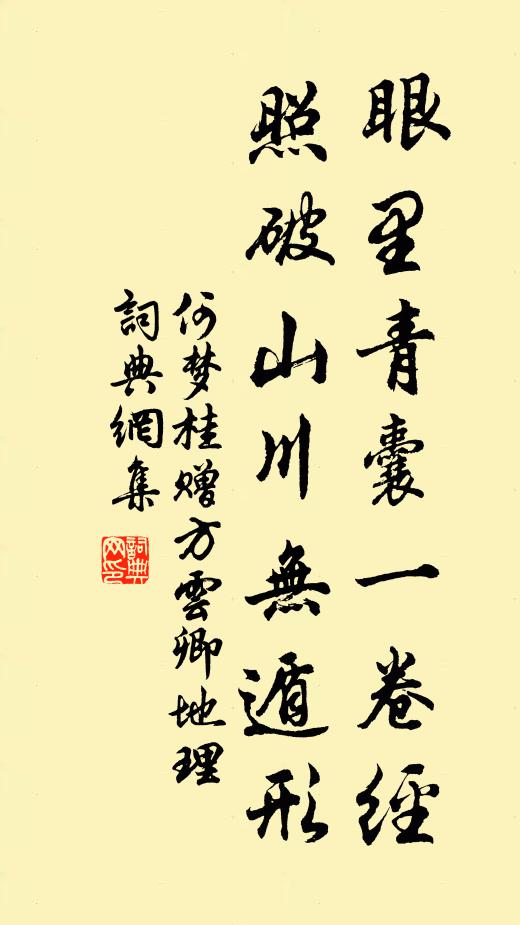 眼里青囊一卷經
照破山川無遁形
何梦桂赠方雲卿地理
詞典網集
詞典網印